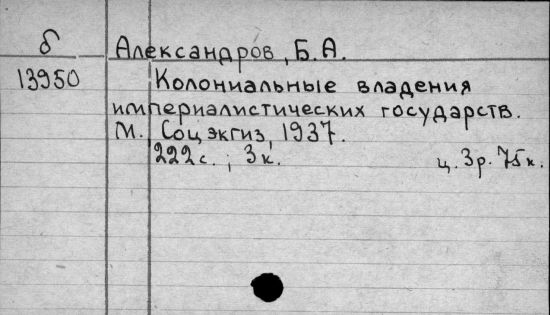 б Александров, Б. А.
13950 Колониальные владения
империалистических государств.
М., Соцэкгиз, 1937.
222 с. ; 3 к. ц. 3 р. 75 к.